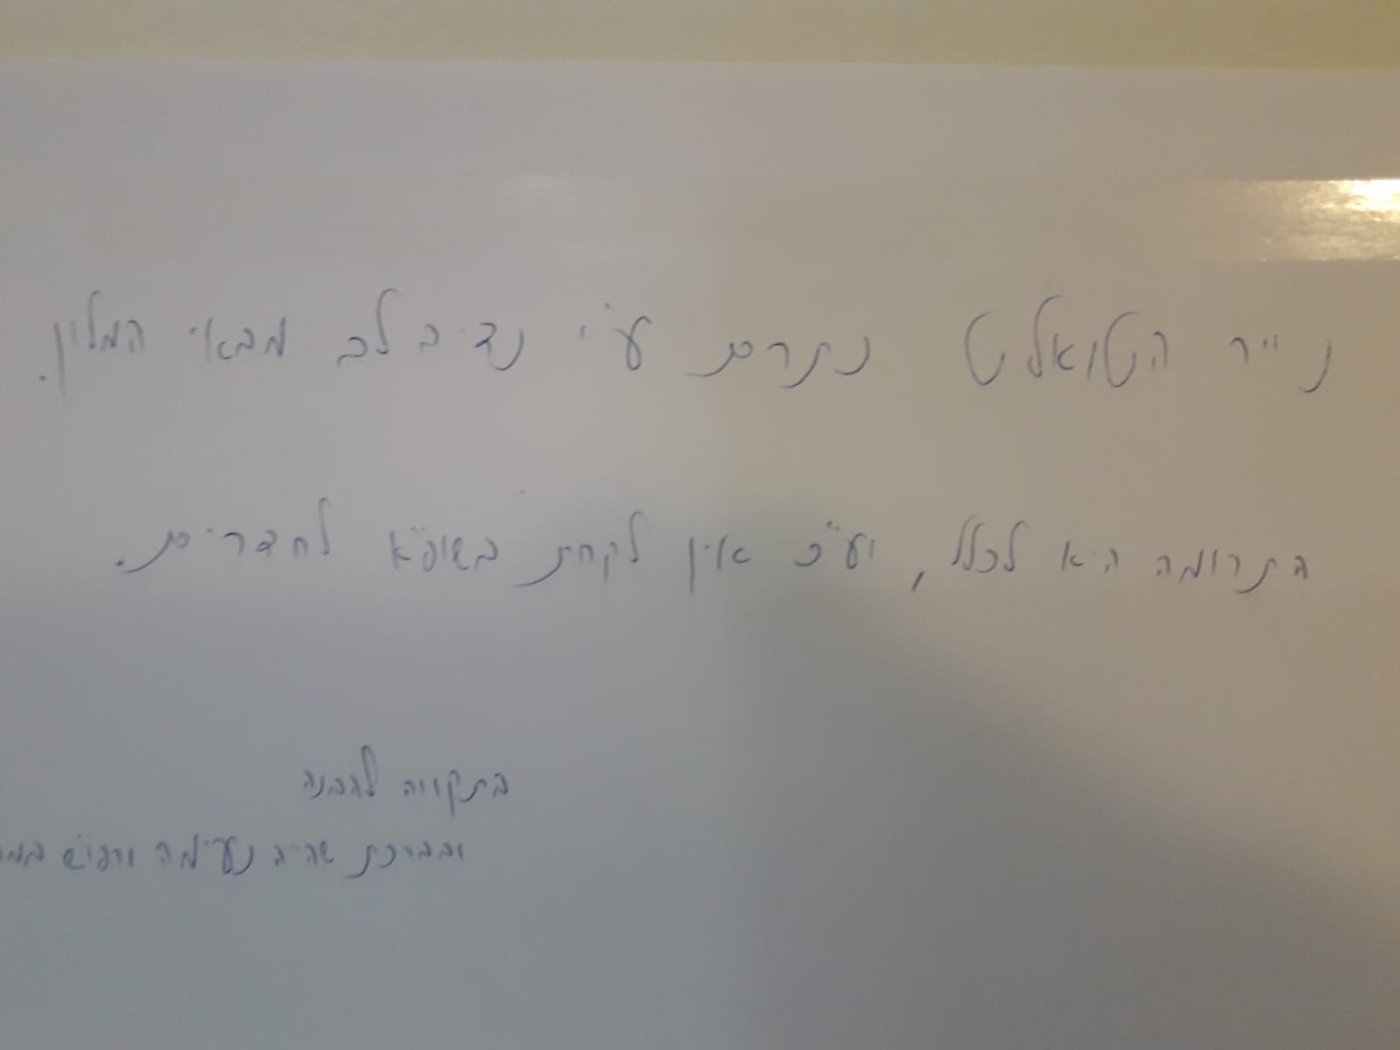 נייר הטואלט נתרם ע"י נדיב לב מבאי המלון.
התרומה היא לכלל, וע"כ אין לקחת בשופ"א לחדרים.
בתקוויה להבנה
ובברכת שהייה נעימה